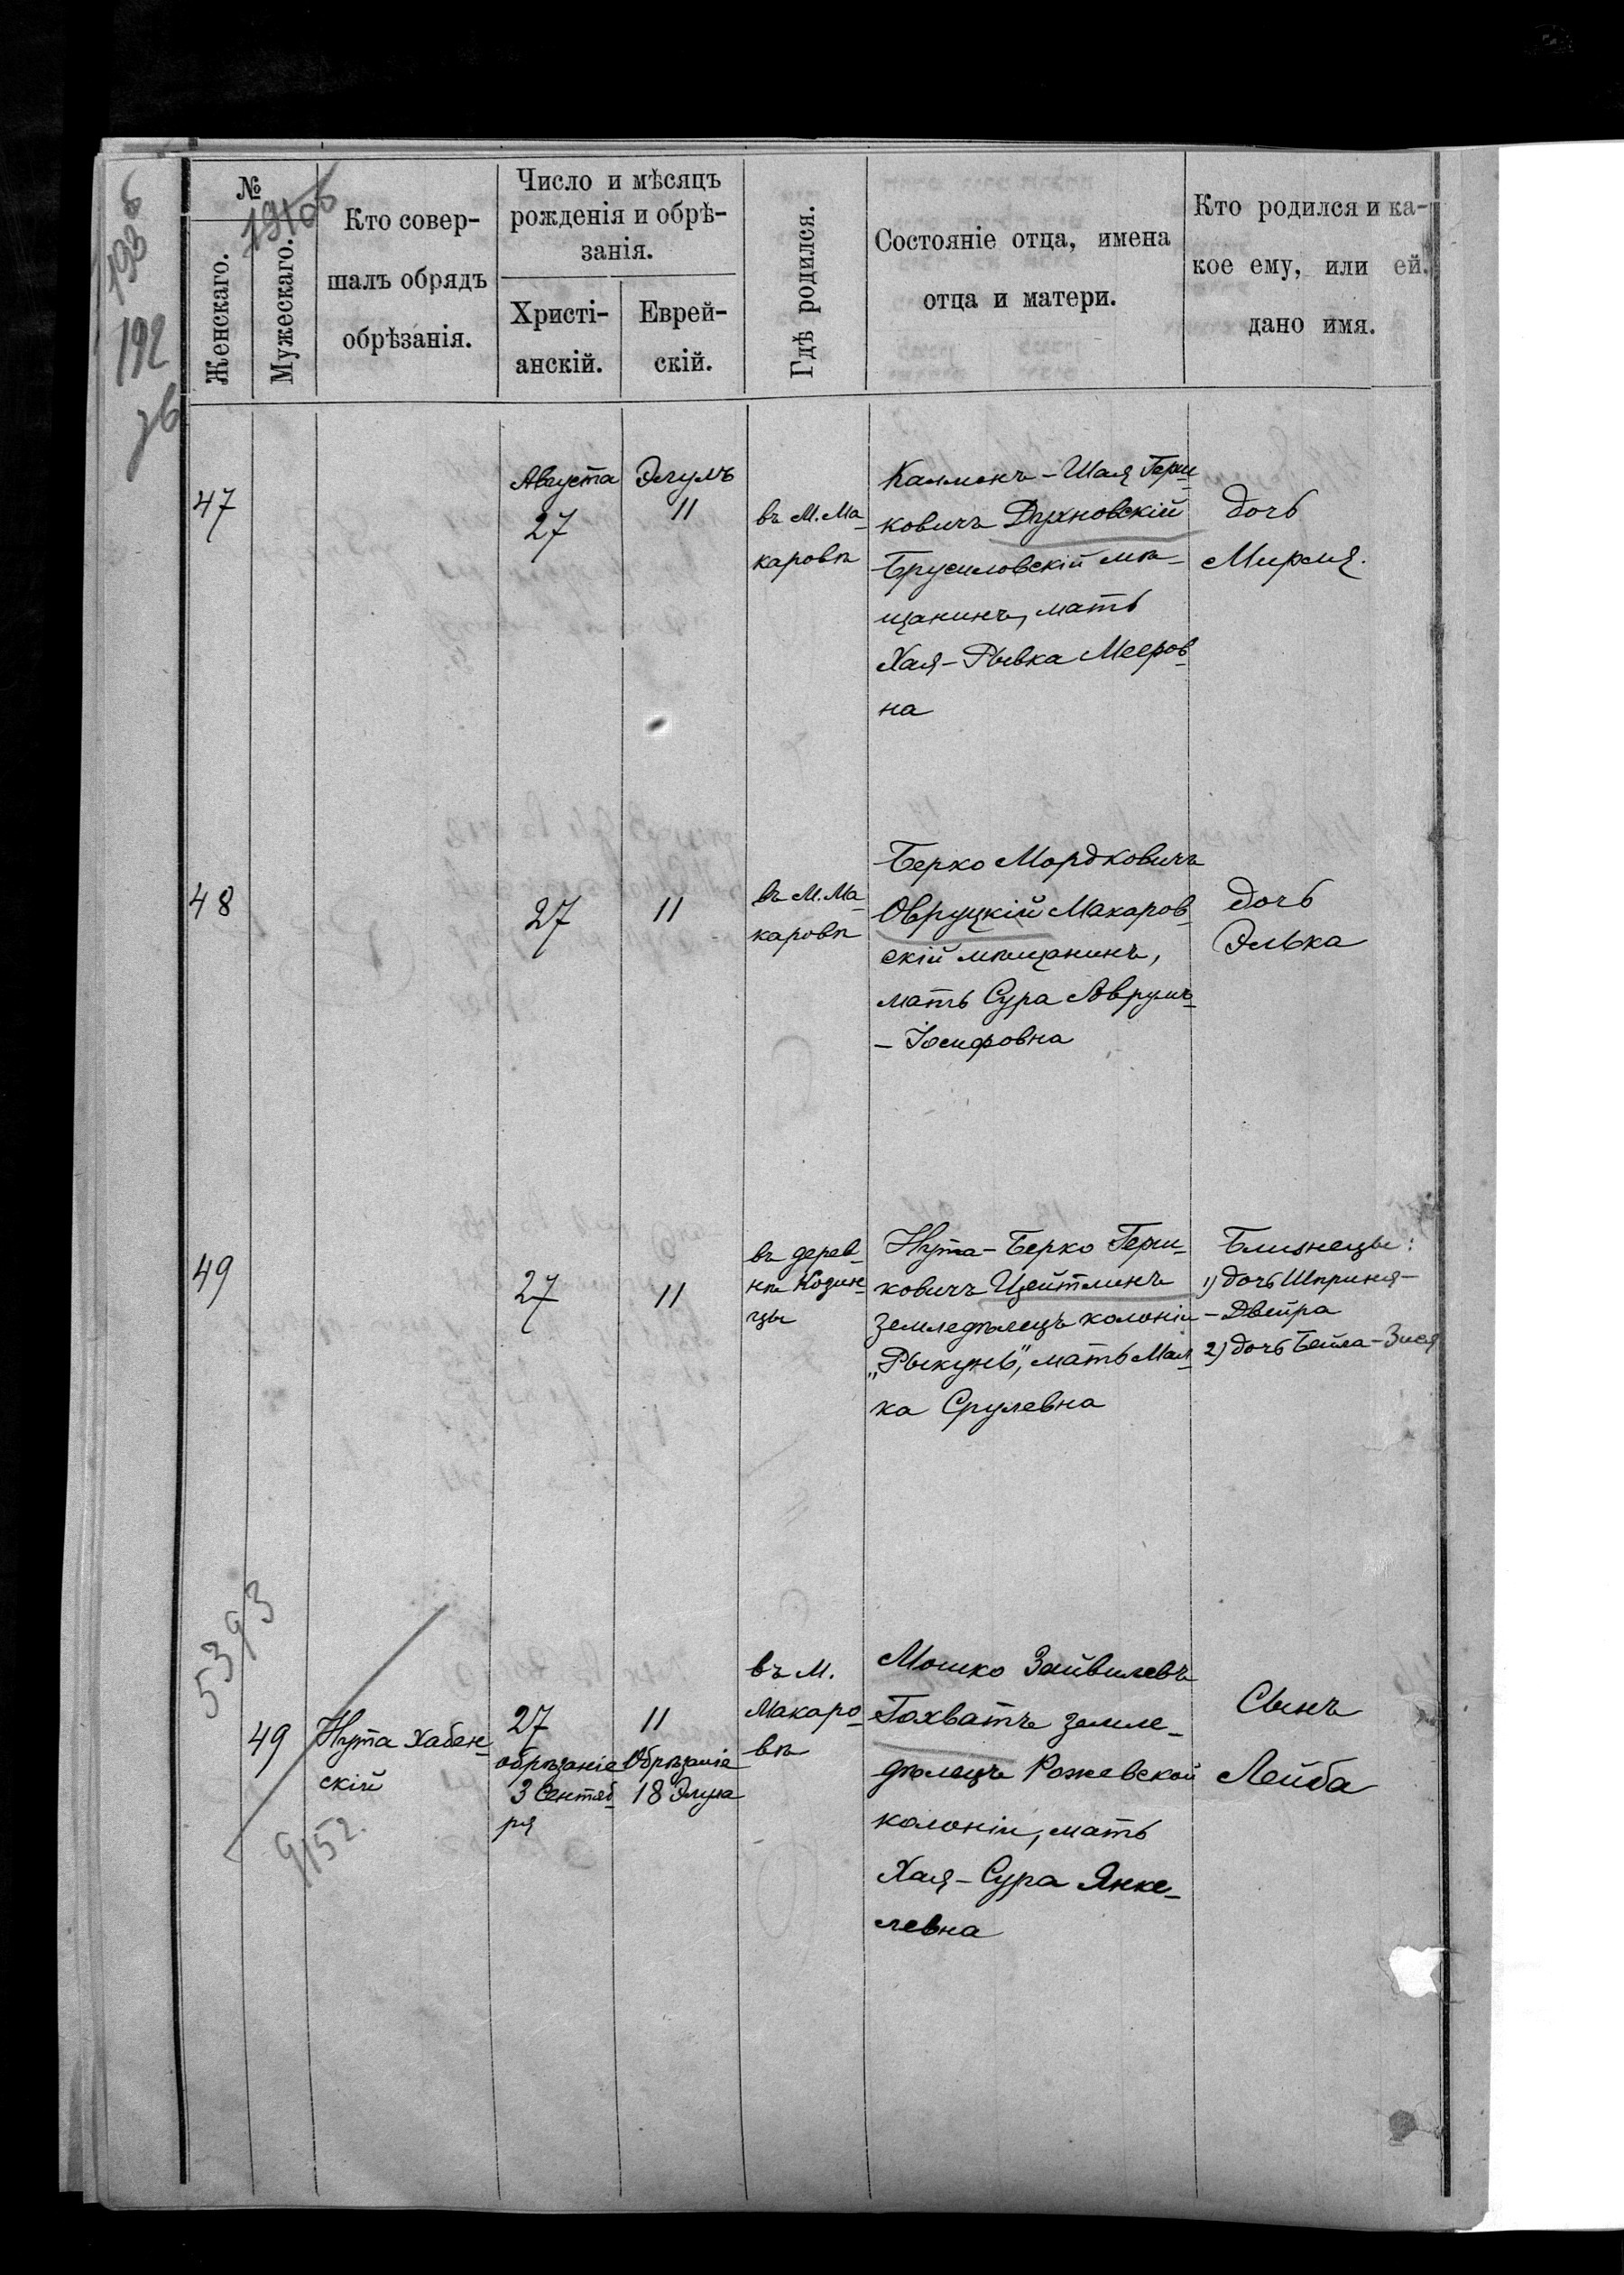 №
Женскаго.
Мужескаго.
Кто совер-
шалъ обрядъ
обрѣзанія.
Число и мѣсяцъ
рожденія и обрѣ-
занія.
Христі-
анскій.
Еврей-
скій.
Гдѣ родился.
Состояніе отца, имена
отца и матери.
Кто родился и ка-
кое ему, или ей.
дано имя.
193
192
47
Августа
27
Элулъ
11
въ М. Ма-
каровѣ
Калманъ-Шая Герш-
ковичъ Духновскій
Брусиловскій мѣ-
щанинъ, мать
Хая-Рывка Мееров-
на
дочь
Мирля.
48
27
11
въ М. Ма-
каровѣ
Берко Мордковичъ
Овруцкій Макаров-
скій мѣщанинъ,
мать Сура Аврумъ-
-Іосифовна
дочь
Элька
49
27
11
въ дерев-
нѣ Кодин-
цы
Нута-Берко Герш-
ковичъ Цейтлинъ
земледѣлецъ колоніи
„Рыкунь", мать Мал-
ка Срулевна
Близнецы:
1) дочь Шприня-
-Двейра
2) дочь Бейла-Зися
5393
49
9152.
Нута Хабен-
скій
27
обрѣзаніе
3 Сентяб-
ря
11
Обрѣзаніе
18 Элула
въ М.
Макаро-
вѣ
Мошко Зайвилевъ
Гохватъ земле-
дѣлецъ Рожевской
колоніи, мать
Хая-Сура Янке-
левна
Сынъ
Лейба